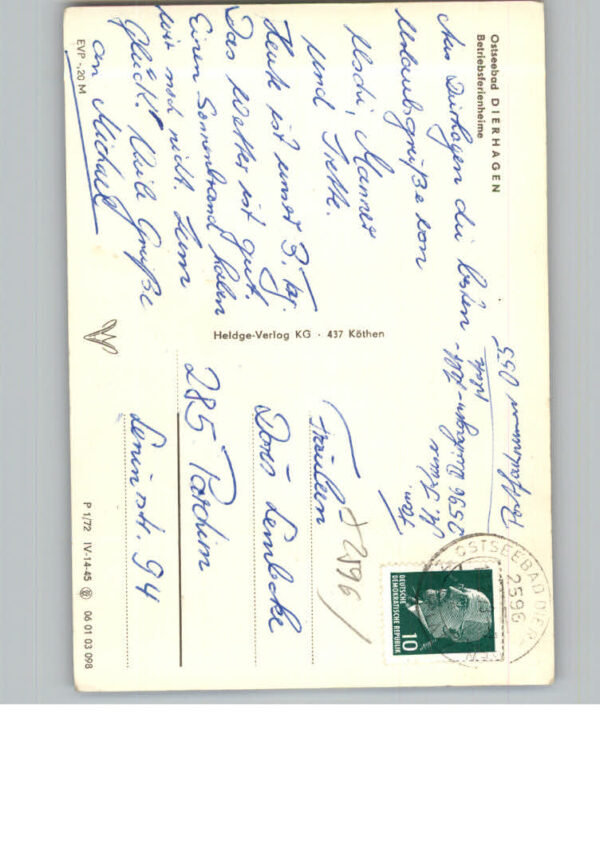 Ostseebad DIERHAGEN
Betriebsferienheime
Aus Dierhagen die besten
Urlaubsgrüße von
Uschi, Mama
und
Heute ist unser 3. Tg.
Das Wetter ist gut.
Einen Sonnenbrand haben
wir noch nicht. Zum
Glück! Viele Grüße
an Michael
EVP -,20 M
Heldge-Verlag KG · 437 Köthen
055
2596
Fräulein
Doris Lembcke
285 Parchim
Leninstr. 94
(2596)
OSTSEEBAD DIER
2596
DEUTSCHE
DEMOKRATISCHE REPUBLIK
10
P 1/72 IV-14-45 06 01 03 098